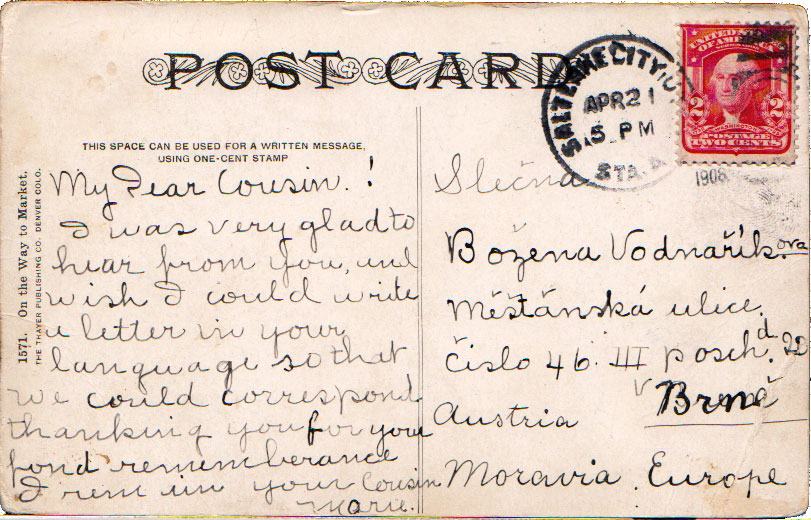 POST CARD
SALT LAKE CITY, U
APR 21
5 PM
STA. A
UNITED STATES OF AMERICA
2 2
POSTAGE
TWO CENTS
1908
THIS SPACE CAN BE USED FOR A WRITTEN MESSAGE,
USING ONE-CENT STAMP
1571. On the Way to Market.
THE THAYER PUBLISHING CO. DENVER COLO.
My Dear Cousin.!
I was very glad to
hear from you, und
wish I could write
u letter in your
language so that
we could correspond
thanking you for your
fond rememberance
I remuin your Cousin
Marie.
Slečna
Božena Vodnařík.ova
Měšťánská ulice
Číslo 46. III posch.d 22
v Brně
Austria
Moravia, Europe